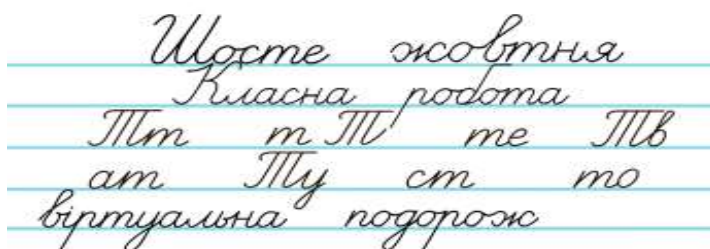 Шосте жовтня
Класна робота
Тт т Т те Тв
ат Ту ст то
віртуальна подорож